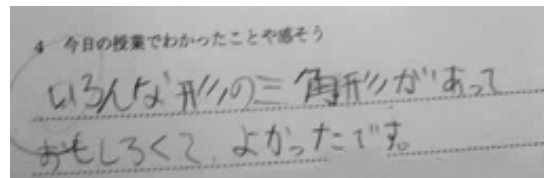 4 今日の授業でわかったことや感そう
いろんな形の三角形があって
おもしろくて、よかったです。